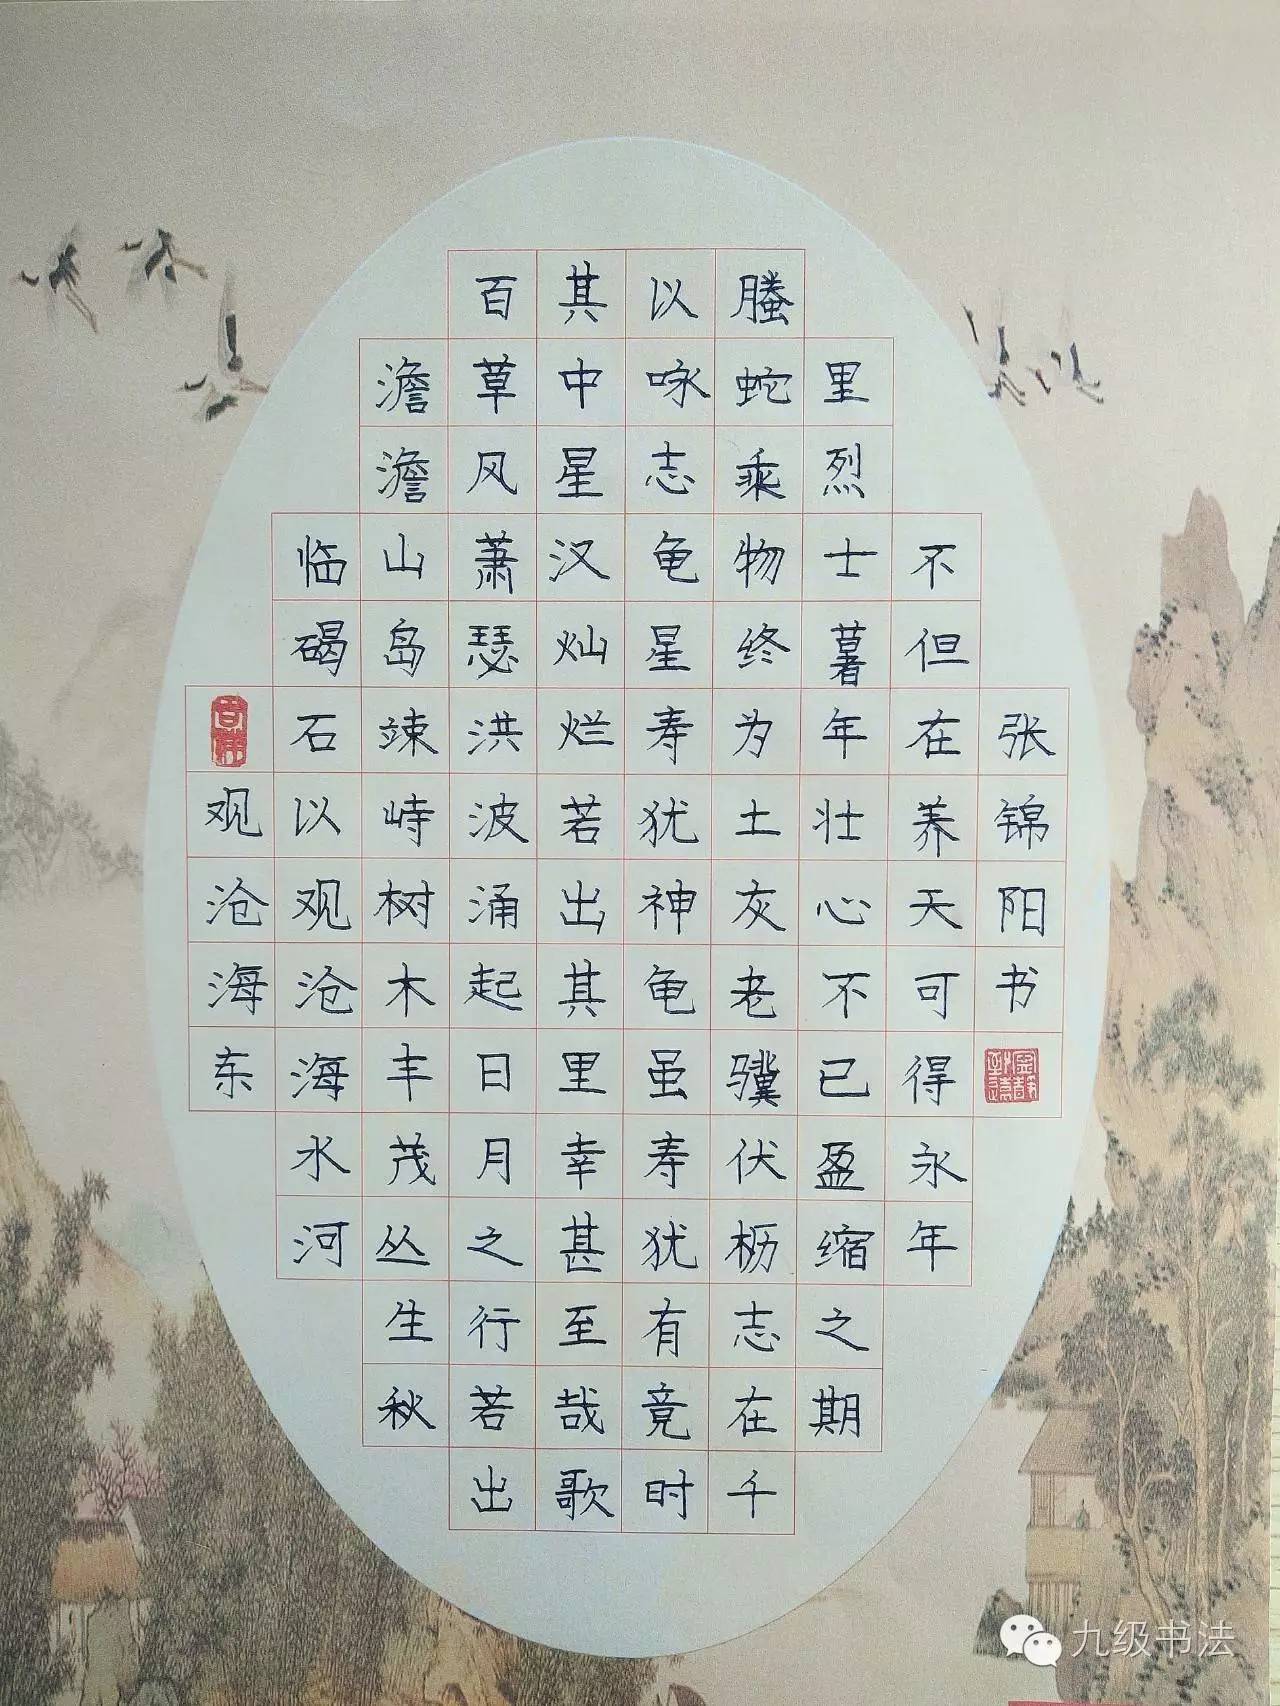 观沧海东
临碣石以观沧海水河
澹澹山岛竦峙树木丰茂丛生秋
百草风萧瑟洪波涌起日月之行若出
其中星汉灿烂若出其里幸甚至哉歌
以咏志龟星寿犹神龟虽寿犹有竟时
螣蛇乘物终为土灰老骥伏枥志在千
里烈士暮年壮心不已盈缩之期
不但在养天可得永年
张锦阳书
九级书法